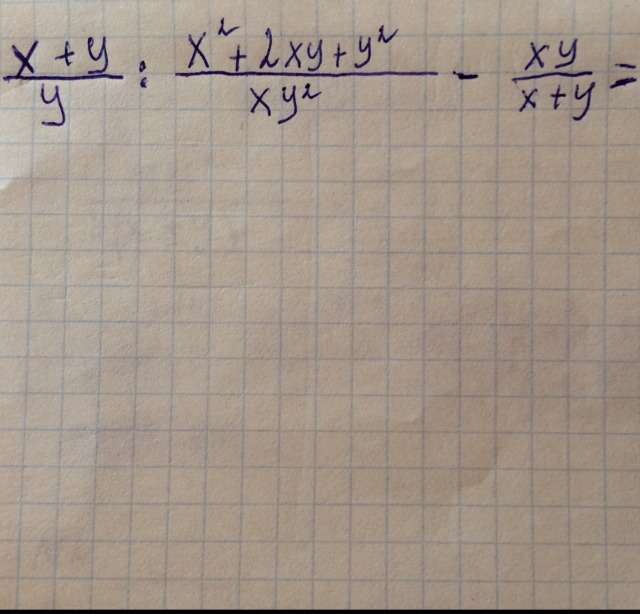 \frac{x+y}{y} : \frac{x^2+2xy+y^2}{xy^2} - \frac{xy}{x+y} =